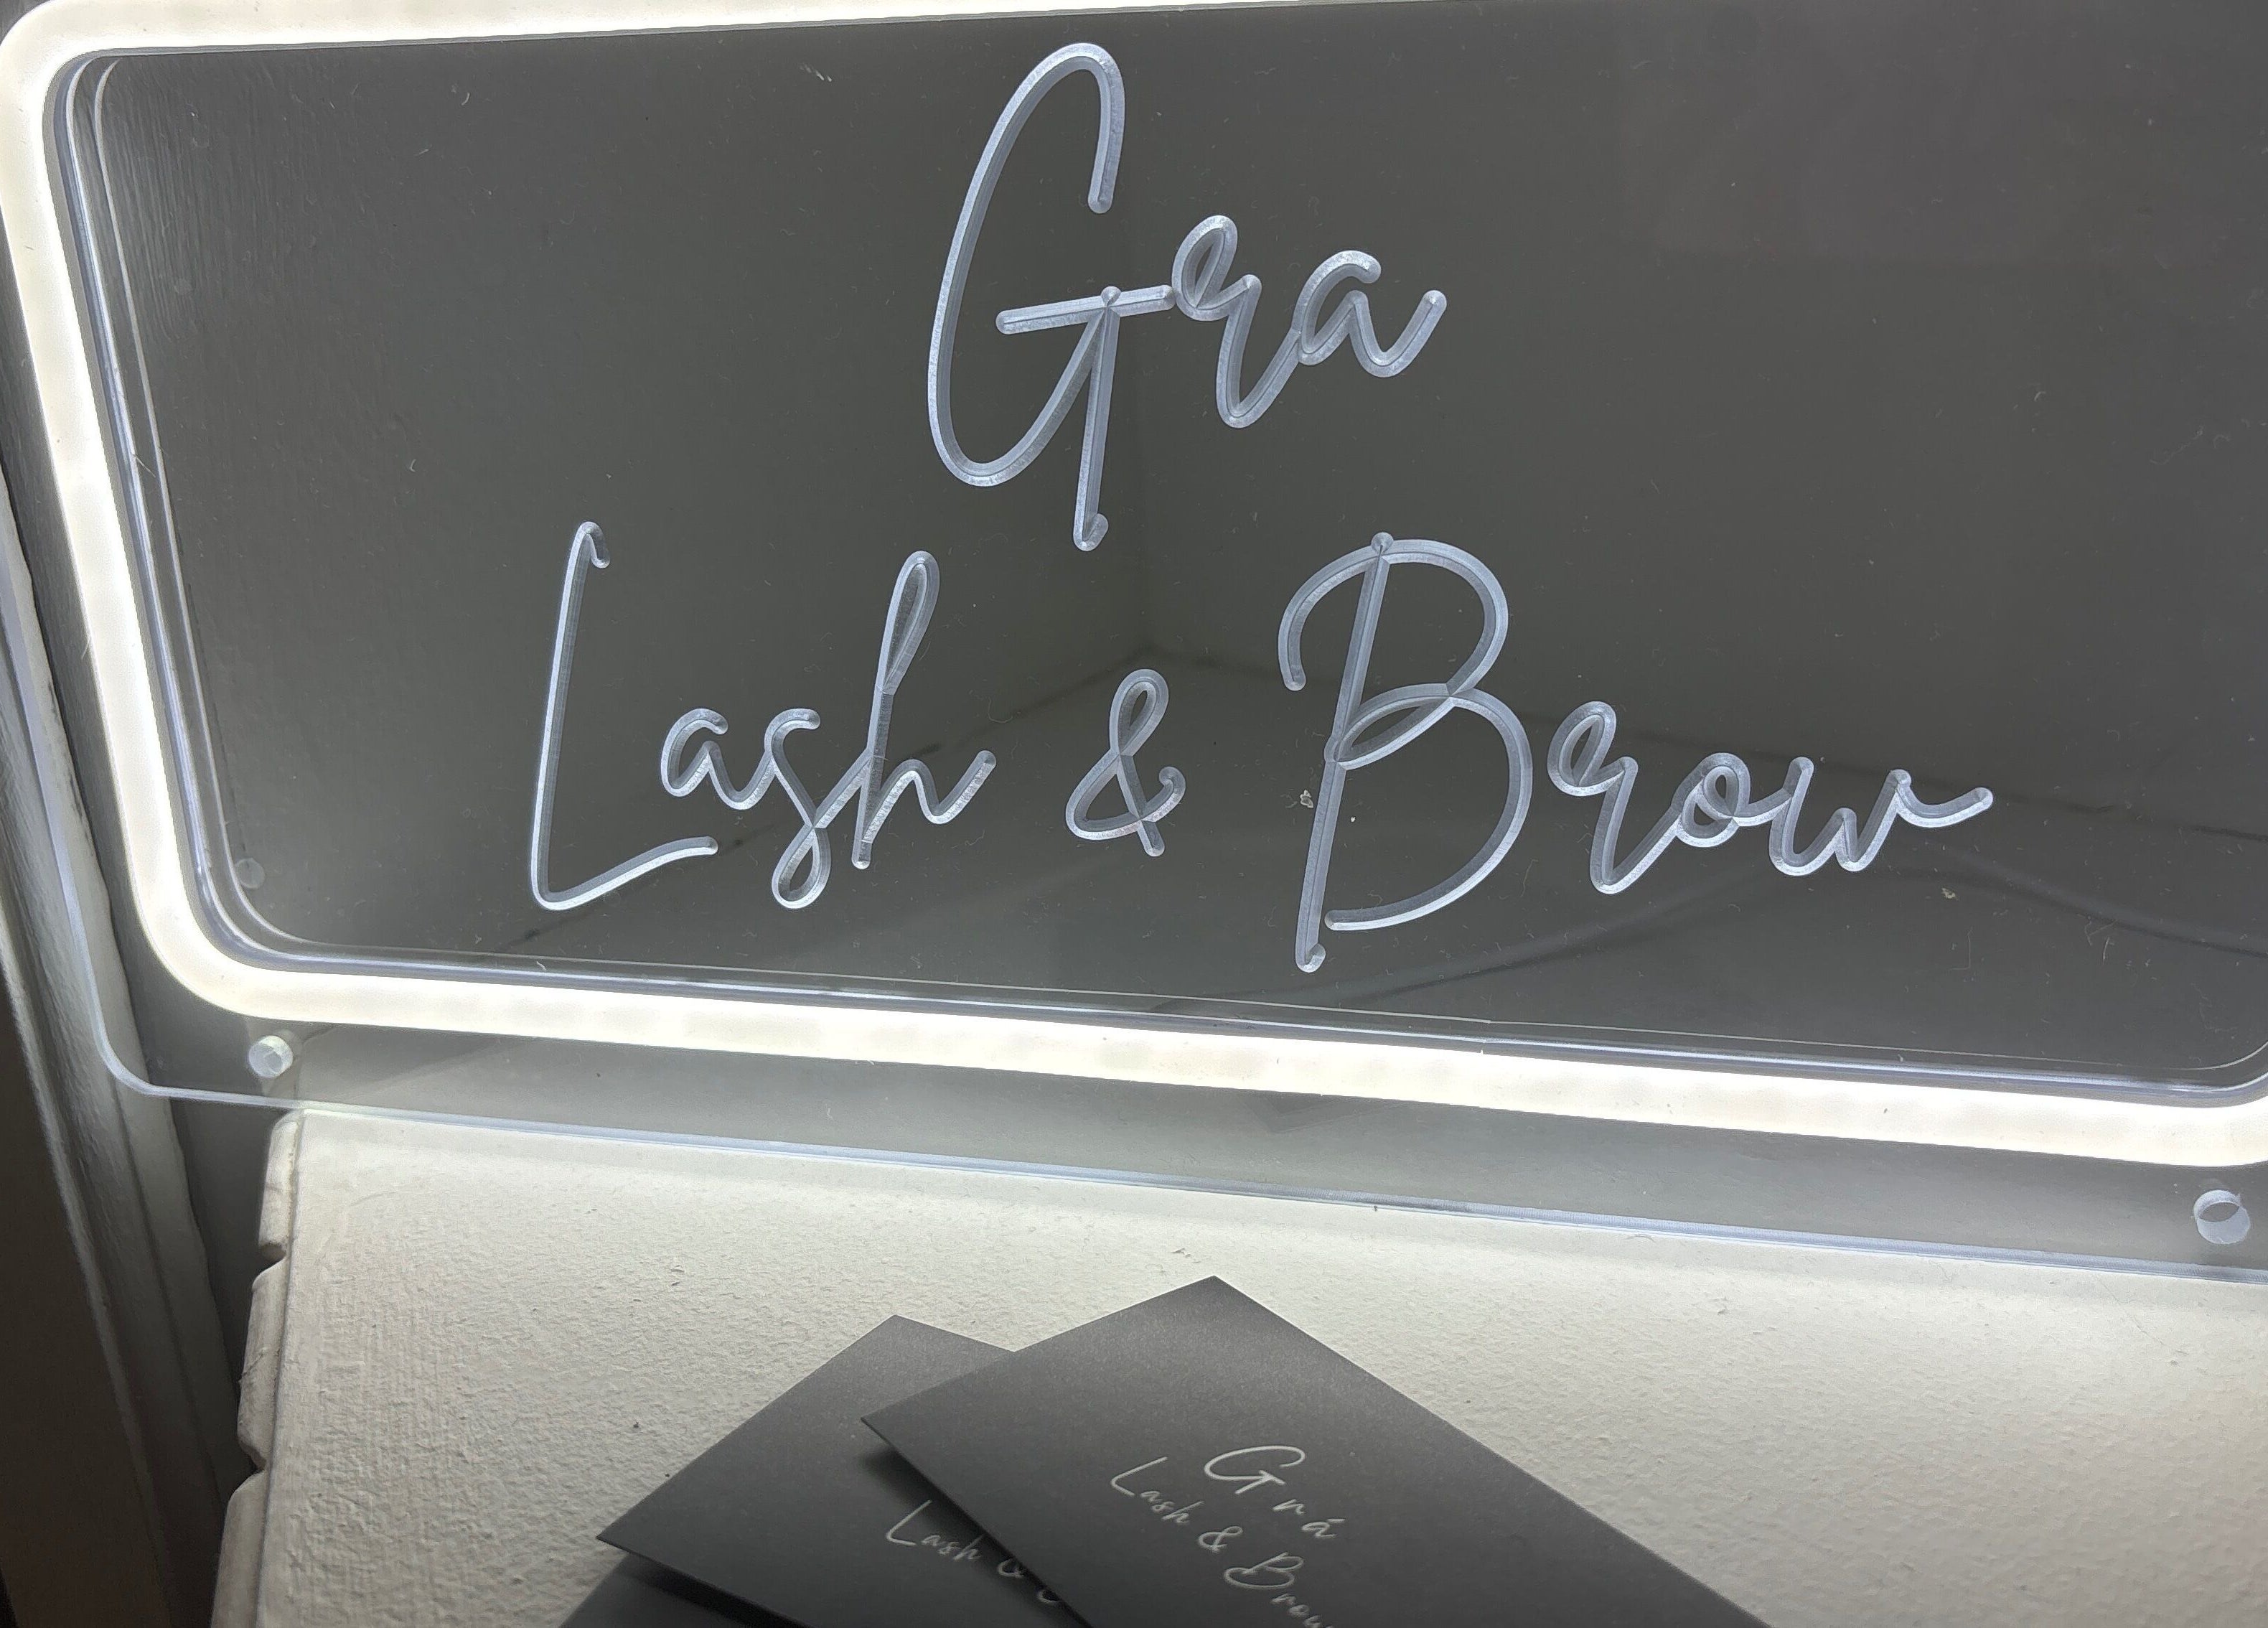 Gra
Lash & Brow
Grá
Lash & Brow
Lash &